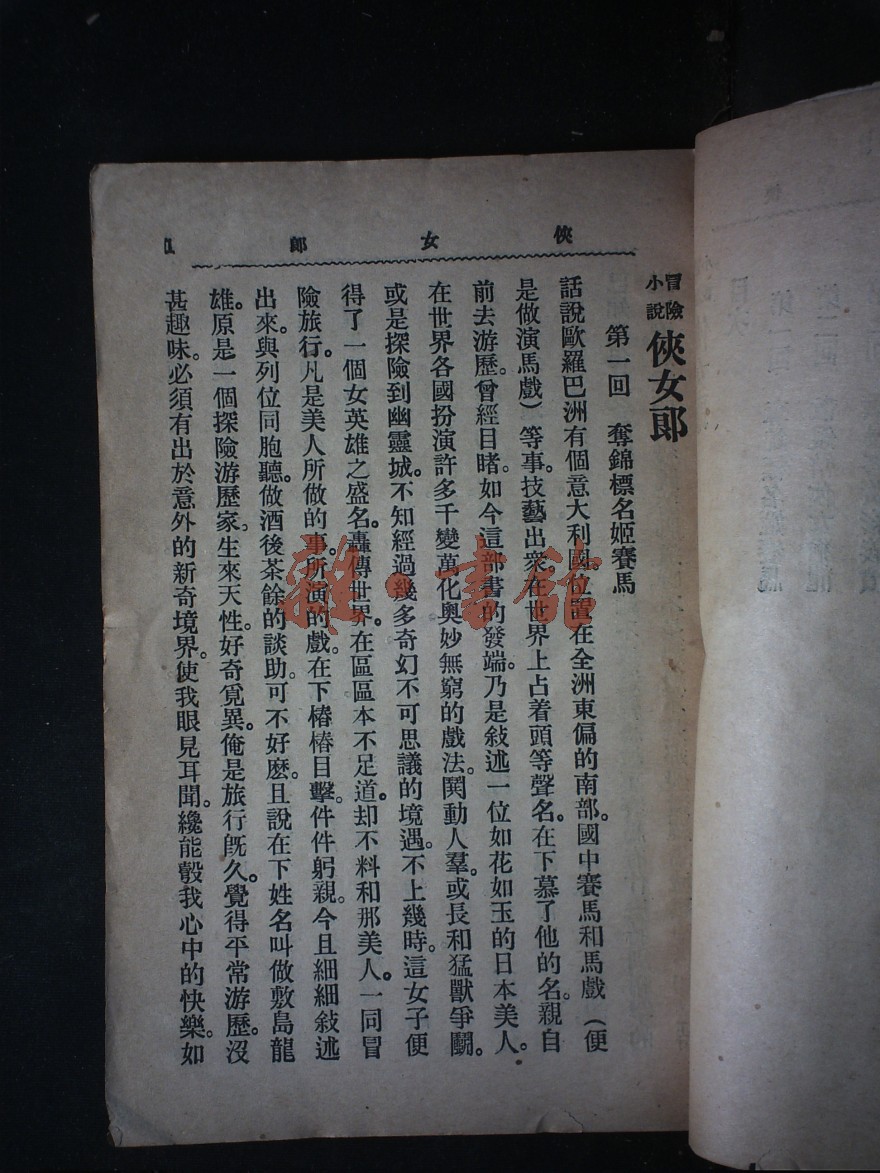 侠女郎
冒險小說 俠女郎
第一回　奪錦標名姬賽馬
話說歐羅巴洲有個意大利國位置在全洲東偏的南部。國中賽馬和馬戲（便
是做演馬戲）等事。技藝出衆。在世界上占着頭等聲名。在下慕了他的名。親自
前去游歷。曾經目睹。如今這部書的發端。乃是敍述一位如花如玉的日本美人。
在世界各國扮演許多千變萬化奧妙無窮的戲法。鬨動人羣。或長和猛獸爭鬬。
或是探險到幽靈城。不知經過幾多奇幻不可思議的境遇。不上幾時。這女子便
得了一個女英雄之盛名。轟傳世界。在區區本不足道。却不料和那美人。一同冒
險旅行。凡是美人所做的事。所演的戲。在下樁樁目擊。件件躬親。今且細細敍述
出來。與列位同胞聽。做酒後茶餘的談助。可不好麽。且說在下姓名叫做敷島龍
雄。原是一個探險游歷家。生來天性。好奇覓異。俺是旅行旣久。覺得平常游歷。沒
甚趣味。必須有出於意外的新奇境界。使我眼見耳聞。纔能彀我心中的快樂。如
雜·書館